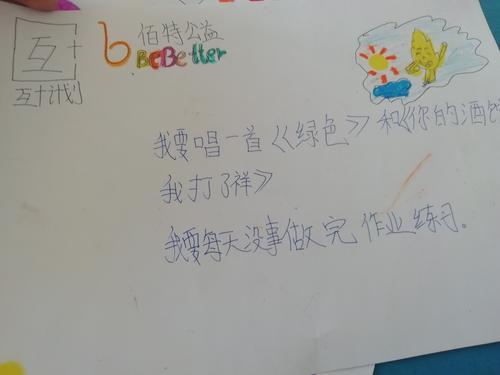 互+
互十计划
佰特公益
BeBetter
我要唱一首《绿色》和《你的酒馆
我打了祥》
我要每天没事做完作业练习。